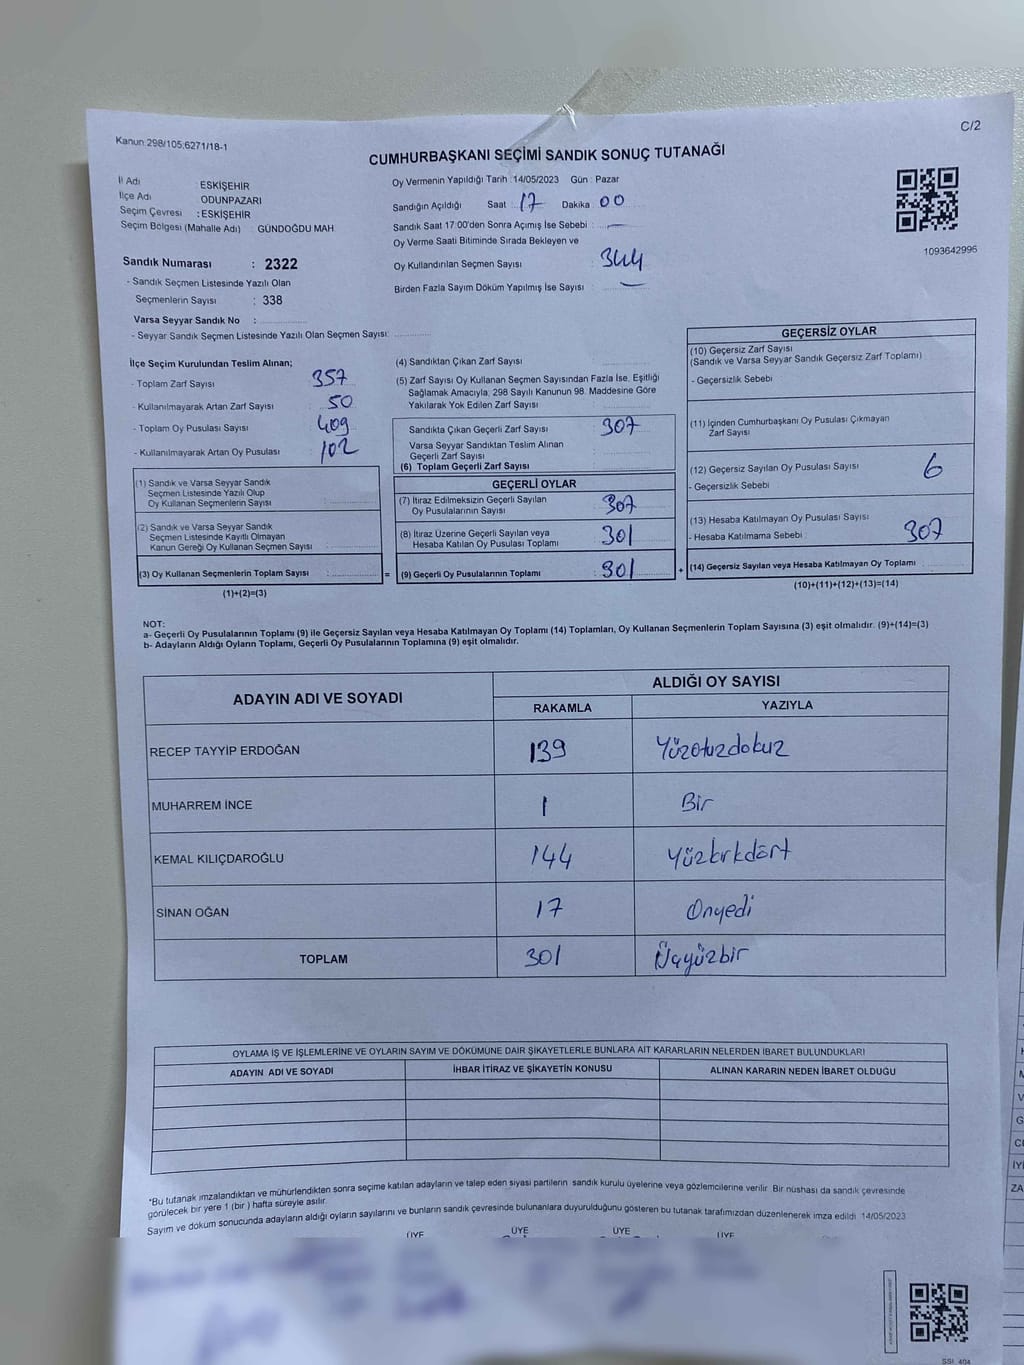 Kanun:298/105;6271/18-1
C/2
CUMHURBAŞKANI SEÇİMİ SANDIK SONUÇ TUTANAĞI
İl Adı : ESKİŞEHİR
İlçe Adı ODUNPAZARI
Seçim Çevresi : ESKİŞEHİR
Seçim Bölgesi (Mahalle Adı) : GÜNDOĞDU MAH
Sandık Numarası : 2322
- Sandık Seçmen Listesinde Yazılı Olan
Seçmenlerin Sayısı : 338
Varsa Seyyar Sandık No :
- Seyyar Sandık Seçmen Listesinde Yazılı Olan Seçmen Sayısı:
Oy Vermenin Yapıldığı Tarih :14/05/2023 Gün : Pazar
Sandığın Açıldığı Saat : 17 Dakika : 00
Sandık Saat 17:00'den Sonra Açımış İse Sebebi : —
Oy Verme Saati Bitiminde Sırada Bekleyen ve
Oy Kullandırılan Seçmen Sayısı : 344
Birden Fazla Sayım Döküm Yapılmış İse Sayısı : —
1093642996
İlçe Seçim Kurulundan Teslim Alınan;
- Toplam Zarf Sayısı 357
- Kullanılmayarak Artan Zarf Sayısı 50
- Toplam Oy Pusulası Sayısı 409
- Kullanılmayarak Artan Oy Pusulası 102
(1) Sandık ve Varsa Seyyar Sandık
Seçmen Listesinde Yazılı Olup
Oy Kullanan Seçmenlerin Sayısı :
(2) Sandık ve Varsa Seyyar Sandık
Seçmen Listesinde Kayıtlı Olmayan
Kanun Gereği Oy Kullanan Seçmen Sayısı :
(3) Oy Kullanan Seçmenlerin Toplam Sayısı :
(1)+(2)=(3)
(4) Sandıktan Çıkan Zarf Sayısı
(5) Zarf Sayısı Oy Kullanan Seçmen Sayısından Fazla İse, Eşitliği
Sağlamak Amacıyla, 298 Sayılı Kanunun 98. Maddesine Göre
Yakılarak Yok Edilen Zarf Sayısı
Sandıkta Çıkan Geçerli Zarf Sayısı : 307
Varsa Seyyar Sandıktan Teslim Alınan
Geçerli Zarf Sayısı
(6) Toplam Geçerli Zarf Sayısı
GEÇERLİ OYLAR
(7) İtiraz Edilmeksizin Geçerli Sayılan
Oy Pusulalarının Sayısı : 307
(8) İtiraz Üzerine Geçerli Sayılan veya
Hesaba Katılan Oy Pusulası Toplamı : 301
= (9) Geçerli Oy Pusulalarının Toplamı : 301 +
GEÇERSİZ OYLAR
(10) Geçersiz Zarf Sayısı
(Sandık ve Varsa Seyyar Sandık Geçersiz Zarf Toplamı)
- Geçersizlik Sebebi
(11) İçinden Cumhurbaşkanı Oy Pusulası Çıkmayan
Zarf Sayısı
(12) Geçersiz Sayılan Oy Pusulası Sayısı 6
- Geçersizlik Sebebi
(13) Hesaba Katılmayan Oy Pusulası Sayısı
- Hesaba Katılmama Sebebi : 307
(14) Geçersiz Sayılan veya Hesaba Katılmayan Oy Toplamı
(10)+(11)+(12)+(13)=(14)
NOT:
a- Geçerli Oy Pusulalarının Toplamı (9) ile Geçersiz Sayılan veya Hesaba Katılmayan Oy Toplamı (14) Toplamları, Oy Kullanan Seçmenlerin Toplam Sayısına (3) eşit olmalıdır. (9)+(14)=(3)
b- Adayların Aldığı Oyların Toplamı, Geçerli Oy Pusulalarının Toplamına (9) eşit olmalıdır.
ADAYIN ADI VE SOYADI ALDIĞI OY SAYISI
RAKAMLA YAZIYLA
RECEP TAYYİP ERDOĞAN 139 Yüzotuzdokuz
MUHARREM İNCE 1 Bir
KEMAL KILIÇDAROĞLU 144 Yüzkırkdört
SİNAN OĞAN 17 Onyedi
TOPLAM 301 Üçyüzbir
OYLAMA İŞ VE İŞLEMLERİNE VE OYLARIN SAYIM VE DÖKÜMÜNE DAİR ŞİKAYETLERLE BUNLARA AİT KARARLARIN NELERDEN İBARET BULUNDUKLARI
ADAYIN ADI VE SOYADI İHBAR İTİRAZ VE ŞİKAYETİN KONUSU ALINAN KARARIN NEDEN İBARET OLDUĞU
*Bu tutanak imzalandıktan ve mühürlendikten sonra seçime katılan adayların ve talep eden siyasi partilerin sandık kurulu üyelerine veya gözlemcilerine verilir. Bir nüshası da sandık çevresinde
görülecek bir yere 1 (bir) hafta süreyle asılır.
Sayım ve döküm sonucunda adayların aldığı oyların sayılarını ve bunların sandık çevresinde bulunanlara duyurulduğunu gösteren bu tutanak tarafımızdan düzenlenerek imza edildi. 14/05/2023
ÜYE ÜYE ÜYE ÜYE
SSİ 404